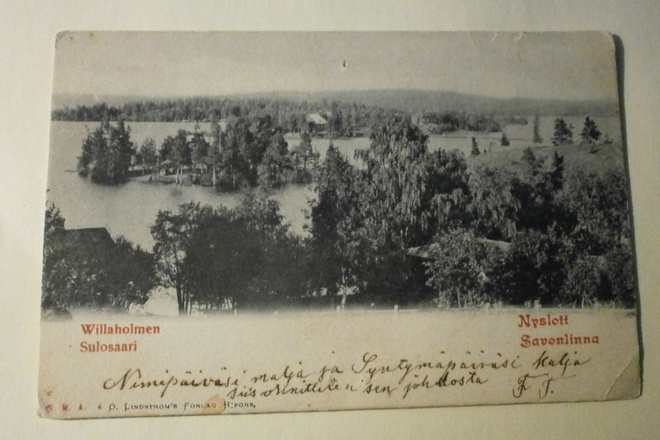 Willaholmen
Sulosaari
Nyslott
Savonlinna
Nimipäiväsi malja ja Syntymäpäiväsi malja
siis sen johdosta F. F.
D. LINDSTRÖM'S FÖRLAG H:FORS,